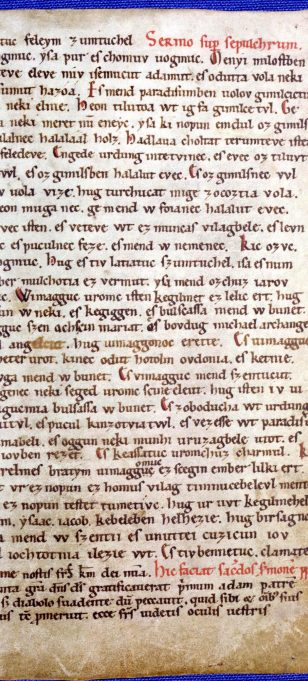 tuc feleym zumtuchel Sermo sup sepulchrum.
ogmuc. ysa pur es chomuv uogmuc. Menyi milostben
eteve eleve miv isemucut adamut. es odutta vola neki
sumut hazoa. Es mend paradisumben uolov gimilcictu
neki elnie. Heon tilutoa wt ig fa gimilce tvl. Ge
a neki meret nu eneyc. ysa ki nopun emdul oz gimils
ulalnec halalaal holz. Hadlaua choltat terumteve iste
feledeve. Engede urdung intetvinec. es evec oz tiluv
twl. es oz gimilsben halalut evec. Es oz gimilsnec vvl
v uola vize. hug turchucat mige zocoztia vola.
eon muga nec. ge mend w foianec halalut evec.
vec isten. es veteve wt ez muncas vilagbele. es levn
c es puculnec feze. es mend w nemenec. Kic ozvc.
ogmuc. Hug es tiv latiatuc szumtuchel. isa es num
ber mulchotia ez vermut. ysa mend ozchuz iarov
c. Wimagguc uromc isten kegilmet ez lelic ert. hug
un w neki. es kegiggen. es bulsassa mend w bunet.
gguc szen achscin mariat. es bovdug michael archang
d angelcut. hug uimaggonoc erette. Es uimagguc
peter urot. kinec odut hotolm ovdonia. es ketnie.
vga mend w bunet. Es vimagguc mend szentucut.
gnec neki seged uromc scine eleut. hug isten iv ui
gucmia bulsassa w bunet. Es zoboducha wt urdung
uitvl. es pucul kinzotvia twl. es vezesse wt paradisu
mabeli. es oggun neki munhi uruzagbele utot. es
iovben rezet. Es keassatuc uromchuz charmul. K
relmes bratym uimagguc omuc ez scegin ember lilki ert.
t vr ez nopun ez homus vilag timnucebelevl mente
ez nopun testet tumetivc. hug ur uvt kegilmehel
am. ysaac. iacob. kebeleben helhezie. hug birsagnop
a mend w szentii es unuttei cuzicun iov
l iochtotnia ilezie wt. Es tiv bennetuc. clamate
me nostis frs km dei mia. Hic faciat sacdos smone
anta gra dns ds gratificauerat pmum adam patre
s diabolo suadente du peccauit. quid sibi & oib suis
us te pmeruit. ecce frs videtis oculis vestris